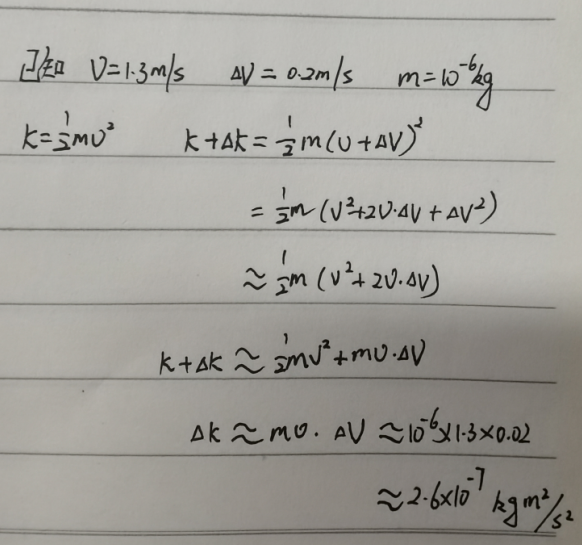 已知 V=1.3m/s ΔV=0.2m/s m=10⁻⁶kg
K=½mv² K+ΔK=½m(v+ΔV)²
=½m(V²+2V·ΔV+ΔV²)
≈½m(V²+2V·ΔV)
K+ΔK≈½mv²+mv·ΔV
ΔK≈mv·ΔV≈10⁻⁶×1.3×0.02
≈2.6×10⁻⁷ kgm²/s²